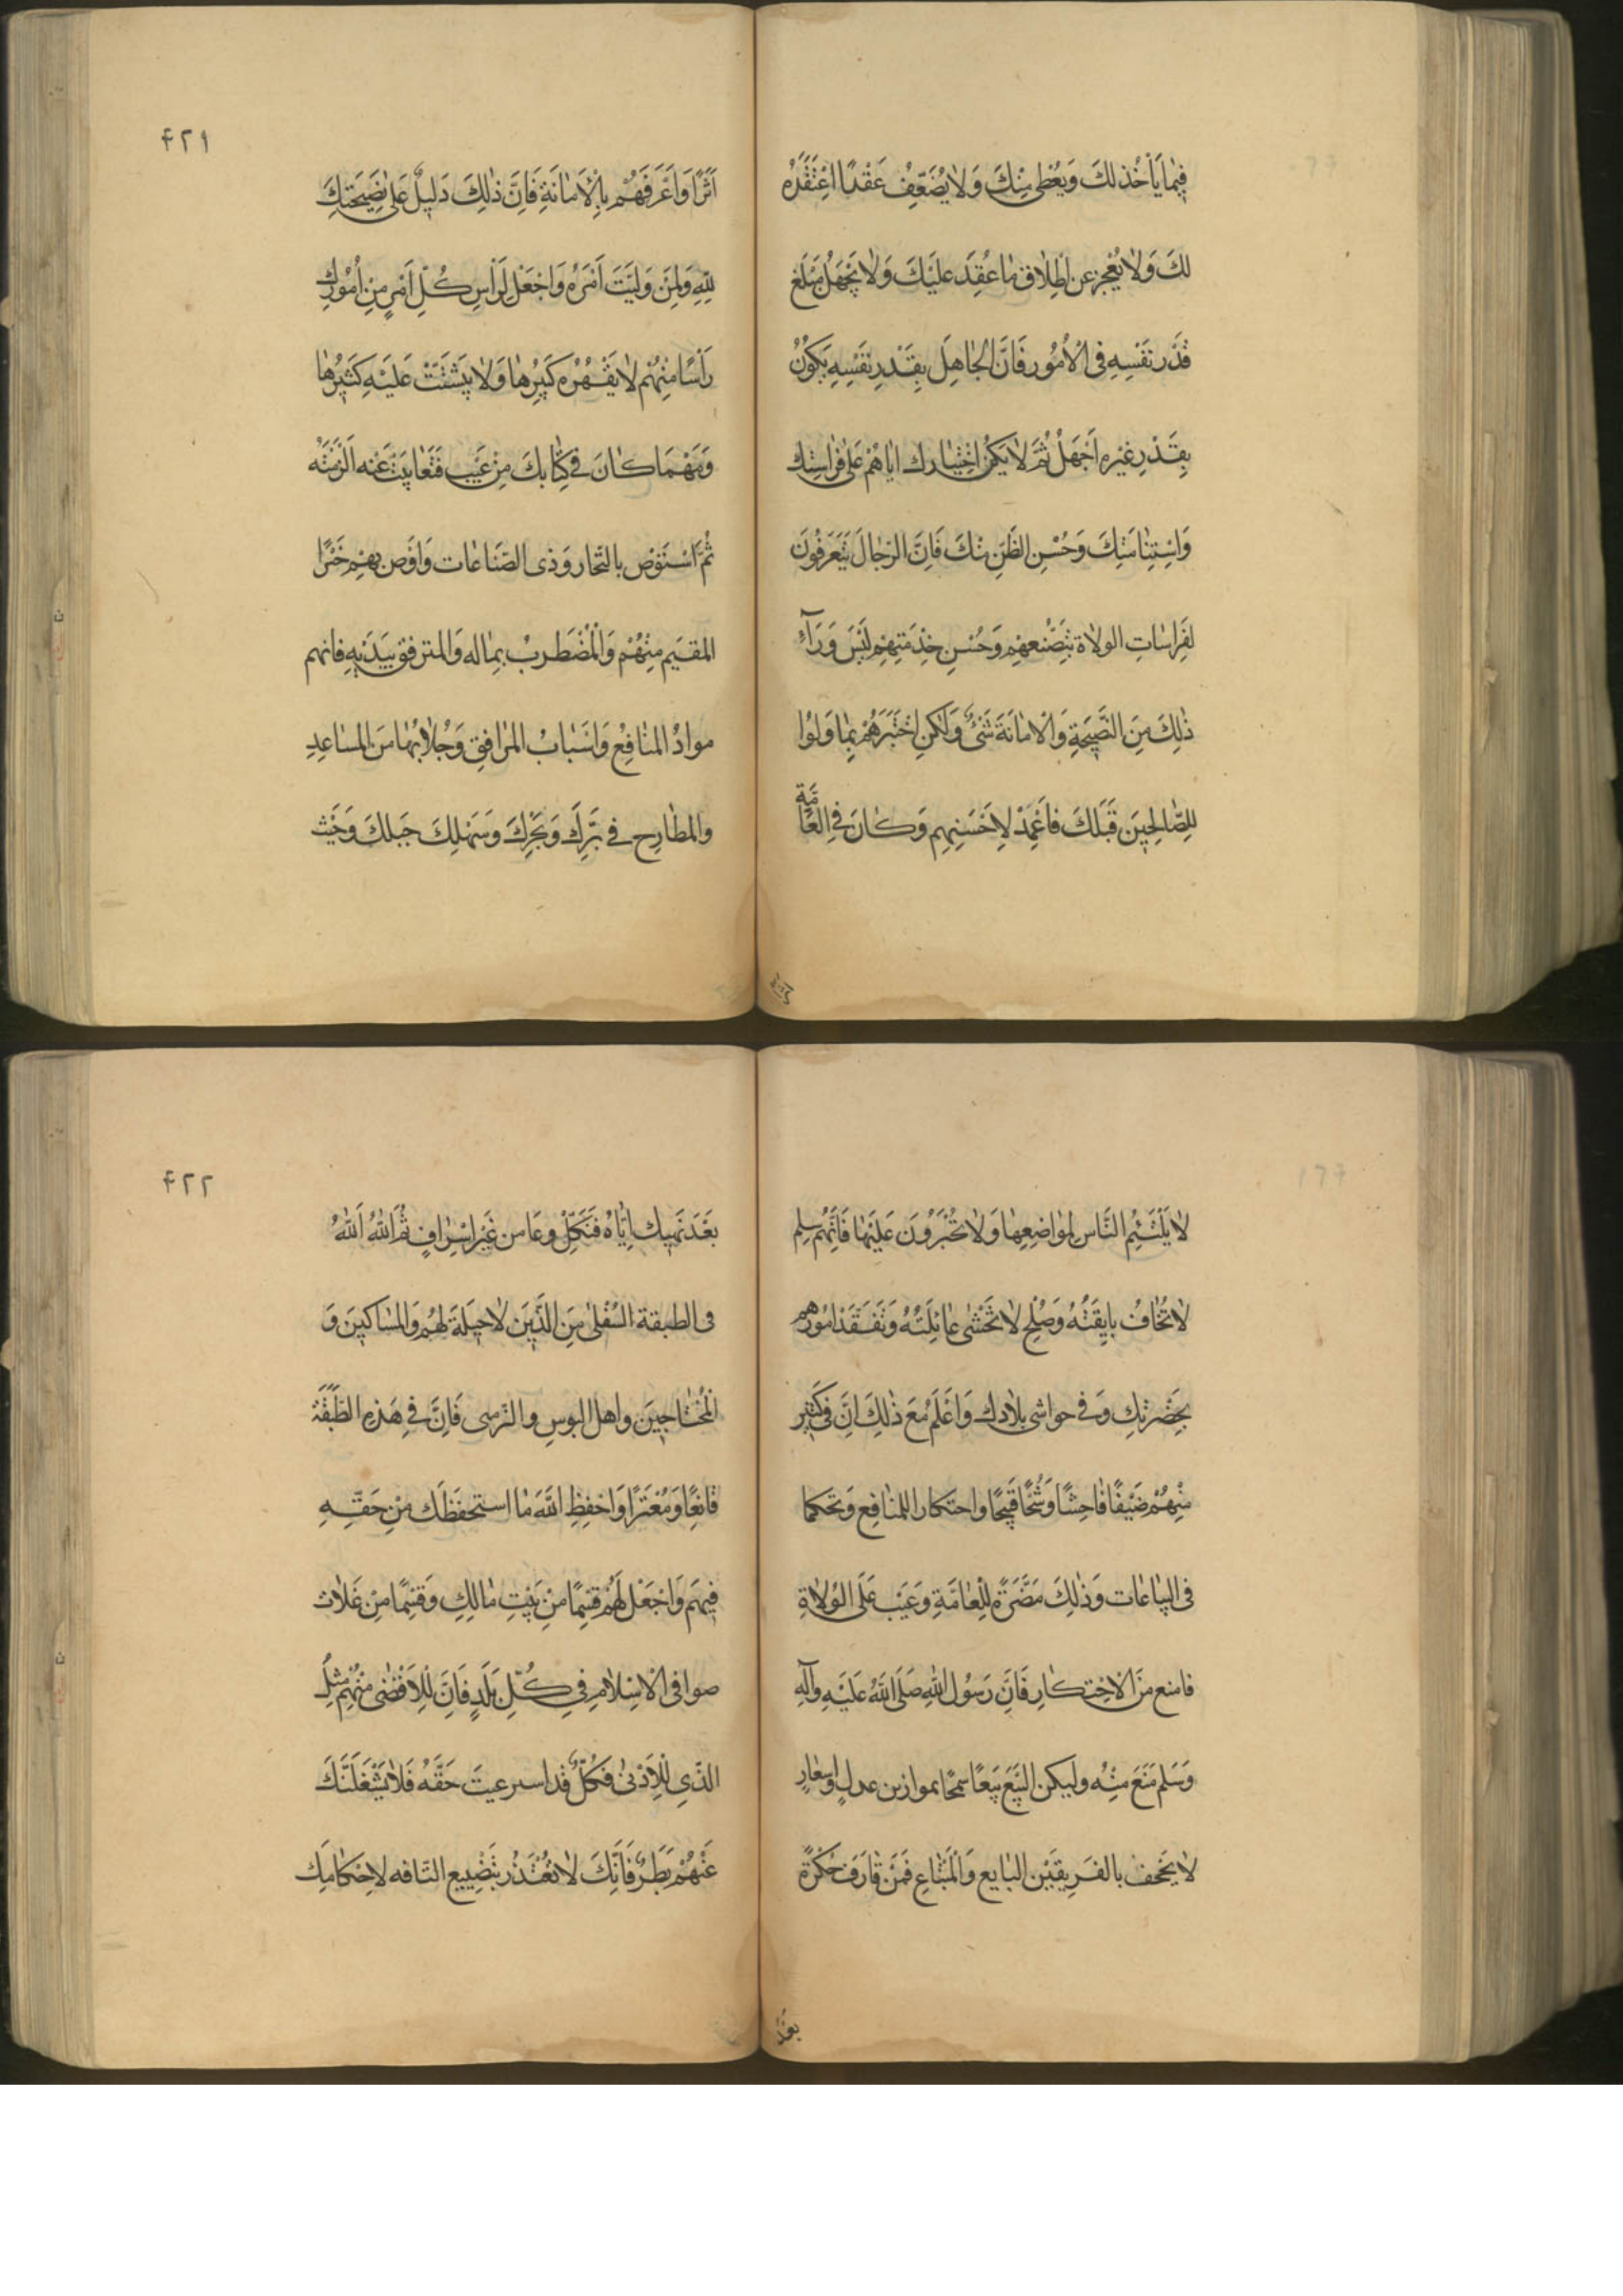 فِيمٰا يَأْخُذ لَكَ وَيُعْطٖى مِنْكَ وَلٰا يُضَعِّفُ عَقْدًا اعْتَقَدَهُ
لَكَ وَلٰا يُعْجِزُ عن اِطْلٰاق مٰا عُقِدَ عَلَيْكَ وَلٰا يَجْهَلُ مَبْلَغ
قَدْرِ نَفْسِهِ فى الْاُمُور فَاِنَّ الجٰاهِلَ بِقَدْرِ نَفْسِهِ يَكُونُ
بِقَدْرِ غَيْرِهِ اَجْهَلُ ثُمَّ لٰا يَكُنِ اخْتِيٰارك ايٰاهُمْ عَلىٰ فِرٰاسَتِك
وَاسْتِنٰامَتِكَ وَحُسْنِ الظَّنِّ مِنْكَ فَاِنَّ الرِّجٰالَ يَتَعَرَّفُونَ
لِفِرٰاسٰاتِ الولٰاة بِتَصَنُّعِهِم وَحُسْنِ خِدْمَتِهِم لَيْسَ وَرٰآءَ
ذٰلِكَ مِنَ النَّصِيحَةِ وَالْامٰانَةَ شَىْءٌ وَلٰكِن اخْتَبِرْهُمْ بِمٰا وَلُوا
لِلصّٰالِحِينَ قَبْلَكَ فَاعْمِدْ لِاَحْسَنِهِم وَكٰانَ فى العٰامَّة
اَثَرًا وَاَعْرَفَهُمْ بِالْاَمٰانَةِ فَاِنَّ ذٰلِكَ دَلِيلٌ عَلىٰ نَصِيحَتِكَ
لِلّٰهِ وَلِمَنْ وَلَيْتَ اَمْرَهُ وَاجْعَلْ لِرَاْسِ كُلِّ اَمْرٍ مِنْ اُمُورِك
رَاْسًا مِنْهُمْ لٰا يَقْهَرُهُ كَبِيرُهٰا وَلٰا يَتَشَتَّتْ عَلَيْهِ كَثِيرُهٰا
وَمَهْمَا كٰانَ فى كِتٰابِكَ مِنْ عَيْب فَتَغٰابَيْتَ عَنْه اَلْزَمْتَه
ثُمَّ اسْتَوْصِ بالتّجار وَذى الصّنَاعٰات وَاَوْصِ بِهِمْ خَيْرًا
المقيَم مِنْهُمْ وَالْمُضْطَرِبُ بِمٰاله وَالمترفق بِبَدَنِهِ فانهم
موادُّ المنٰافِعُ وَاَسْبٰابُ المَرٰافِقِ وَجُلّٰابُهٰا مِنَ المسٰاعِدِ
والمطٰارِحِ فى بَرِّكَ وَبَحْرِكَ وَسَهْلِكَ جَبَلكَ وَحَيْث
۴۲۱
لٰا يَلْتَئِمُ النَّاس لِمَوٰاضِعِهٰا وَلٰا يَجْتَرِؤُنَ عَلَيْهٰا فَاِنَّهُمْ سِلم
لٰا تُخٰافُ بٰايِقَتُهُ وَصُلْح لٰا تَخْشىٰ غٰائِلَتُهُ وَتَفَقَّدْ اُمُورَهُم
بِحَضْرَتِكَ وَفى حواشى بِلٰادك وَاعْلَم مَعَ ذٰلِكَ اَنَّ فى كَثِيْر
مِنْهُمْ ضَيْقًا فٰاحِشًا وَشُحًّا قَبِيحًا واحتكار اللمنٰافِع وَتحَكما
فى البيٰاعٰات وَذٰلِكَ مَضَرَّةٌ لِلْعٰامَّةِ وَعَيْب عَلَى الْوُلٰاةِ
فامنع مِنَ الْاِحْتِكٰارِ فَاِنَّ رَسُول اللّٰهِ صَلَى اللّٰهُ عَلَيْهِ وَآلِهِ
وَسَلم مَنَعَ مِنْه وليكن الْبَيْع بَيْعًا سمحًا بموازين عدلٍ وَاسعٰارٍ
لٰا يحجف بالفَرِيقَيْن البٰايع وَالْمُبْتٰاعِ فَمَنْ قٰارَفَ حُكْرَةً
بَعْدَ
بَعْدَ نَهْيِك اِيّٰاهُ فَنَكِّلْ وعَاقب مِن غَيْر اِسْرٰافٍ ثُمّ اَللّٰهُ اَللّٰهُ
فى الطبقة السُفْلىٰ مِنَ الّذِيْنَ لٰا حِيلَةَ لَهُم وَالمسٰاكِينَ وَ
الْمُحْتٰاجِينَ واهل البوسِ والزمنى فَاِنَّ فى هَذِهِ الطَّبَقَةِ
قٰانِعًا وَمُعْتَرًّا وَاحْفِظِ اللّٰهَ مٰا استحفَظَك مِنْ حَقِّهِ
فِيهِم وَاجْعَلْ لَهُمْ قِسْمًا مِنْ بَيْتِ مٰالِكِ وَقِسْمًا مِنْ غَلّٰات
صوافى الْاِسْلٰامِ فى كُلِّ بَلَدٍ فَاِنَّ لِلْاَقْصىٰ مِنْهُمْ مِثْلَ
الذّى لِلْاَدْنىٰ فَكُلٌّ قد استرعيتَ حَقَّهُ فَلٰا يَشْغَلَنَّكَ
عَنْهُمْ بَطَرٌ فَاِنَّكَ لٰا تُعْذَرُ بتَضْيِيع التّافه لِاِحْكٰامِكَ
۴۲۲